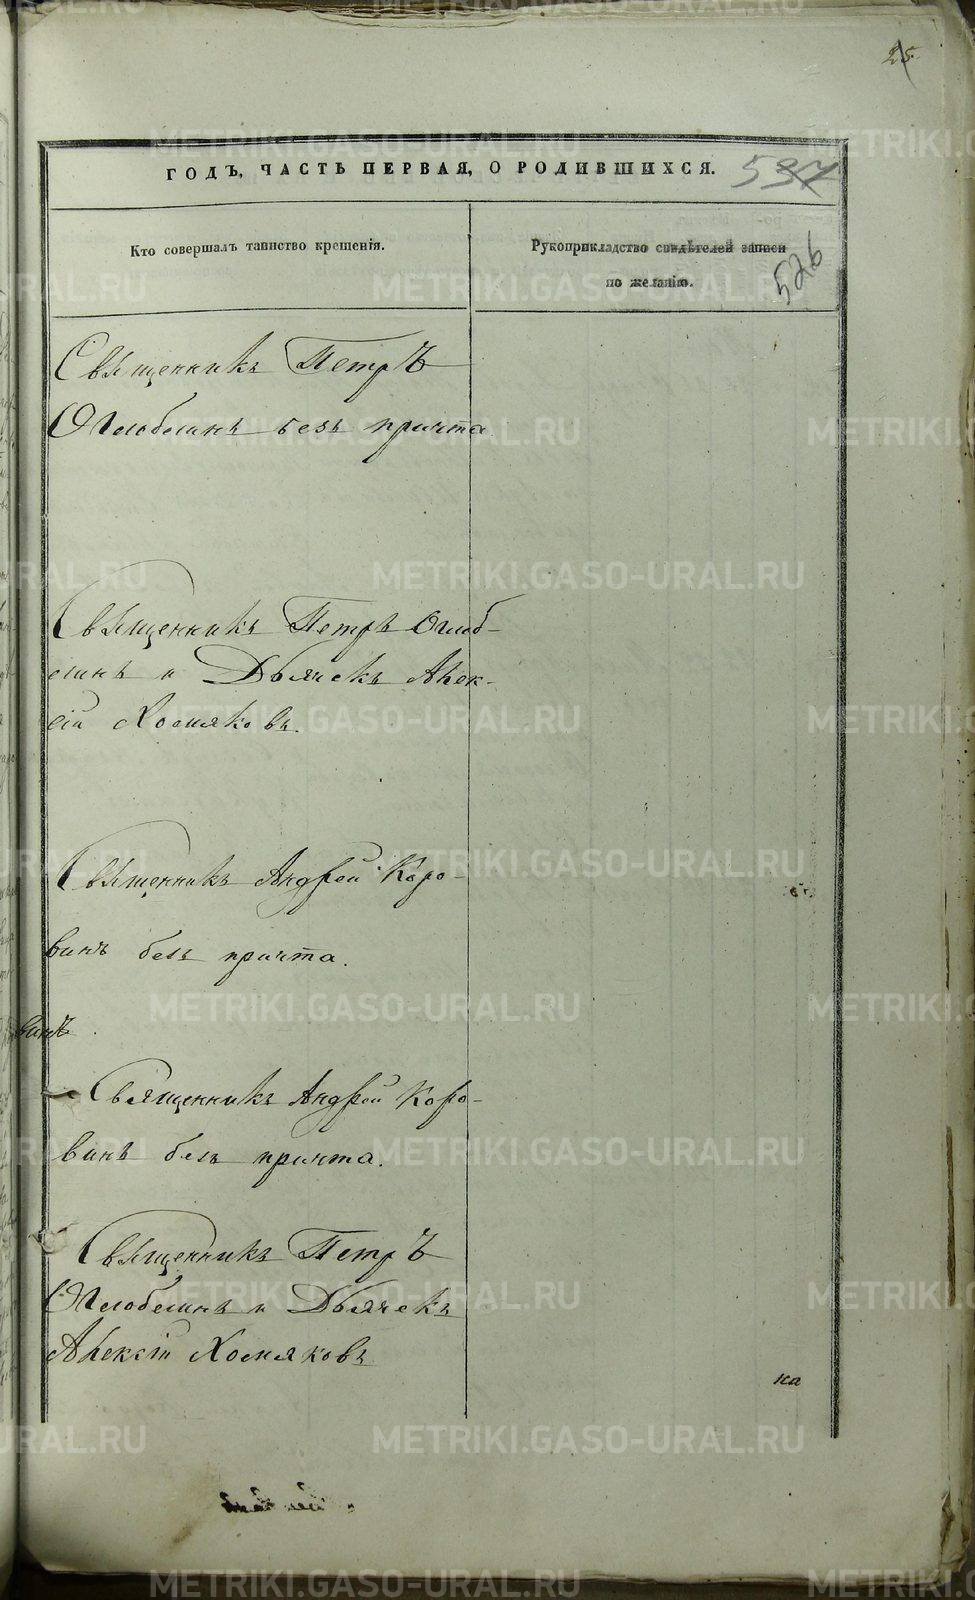 25
ГОДЪ, ЧАСТЬ ПЕРВАЯ, О РОДИВШИХСЯ.
537
Кто совершалъ таинство крещенія.
Рукоприкладство свидѣтелей записи
по желанію.
526
Священникъ Петръ
Оглоблинъ безъ причта
Священникъ Петръ Оглоб-
линъ и Дьячекъ Алек-
сій Хомяковъ.
Священникъ Андрей Коро-
винъ безъ причта.
винъ
Священникъ Андрей Коро-
винъ безъ причта.
Священникъ Петръ
Оглоблинъ и Дьячекъ
Алексій Хомяковъ
на
METRIKI.GASO-URAL.RU